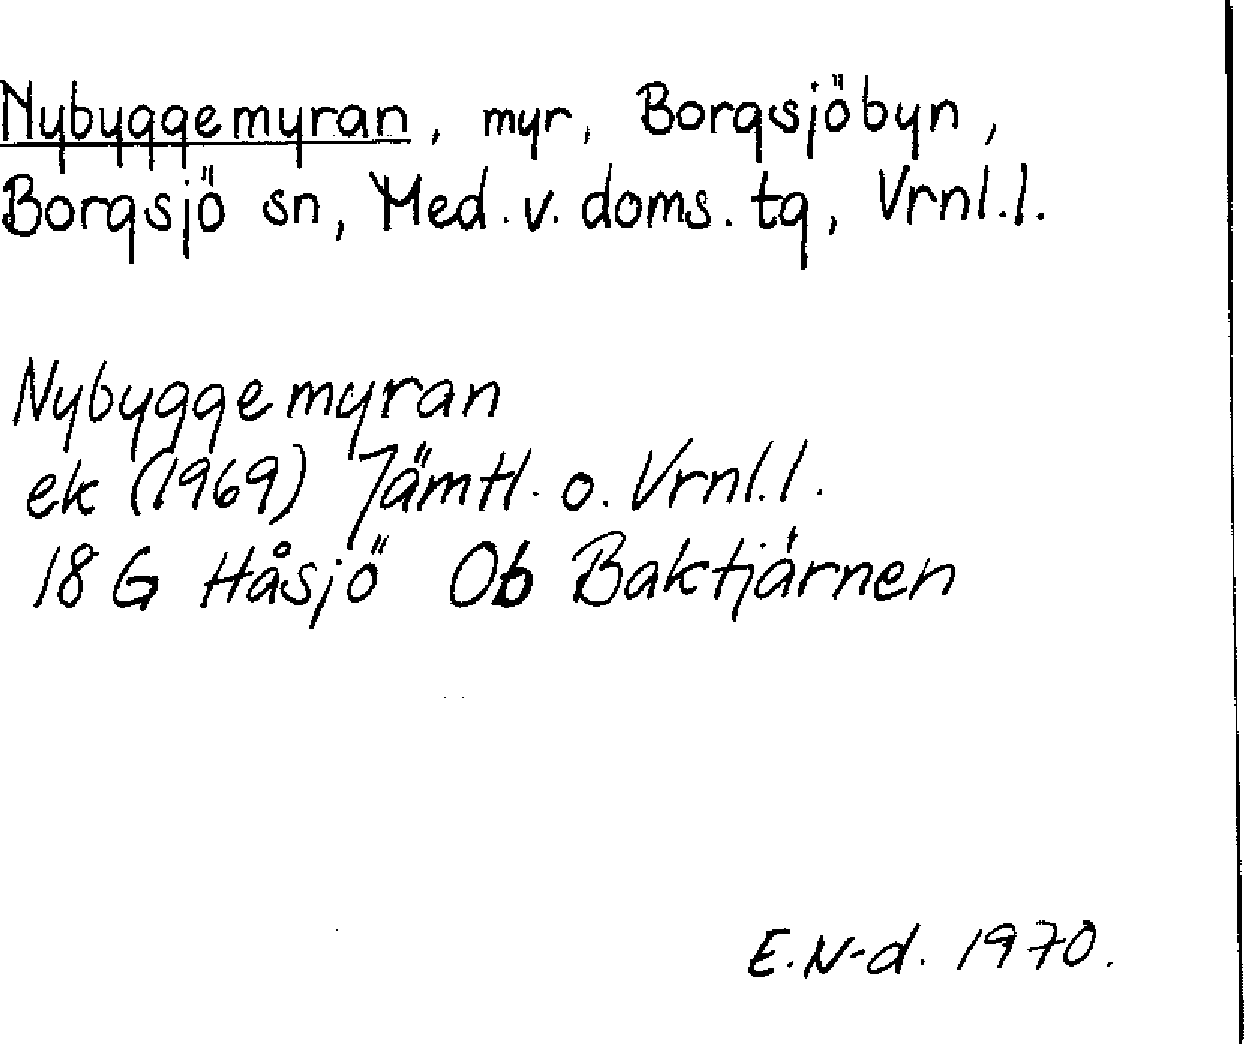 Nybyggemyran, myr, Borgsjöbyn,
Borgsjö sn, Med. v. doms. tg, Vrnl. l.
Nybyggemyran
ek (1969) Jämtl. o. Vrnl. l.
18 G Håsjö 0b Baktjärnen
E. N-d. 1970.